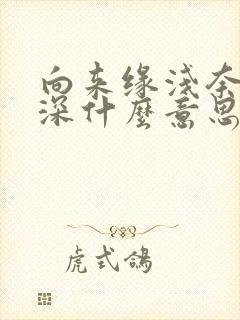 向来缘浅奈
深什麼意思
虎式鴿